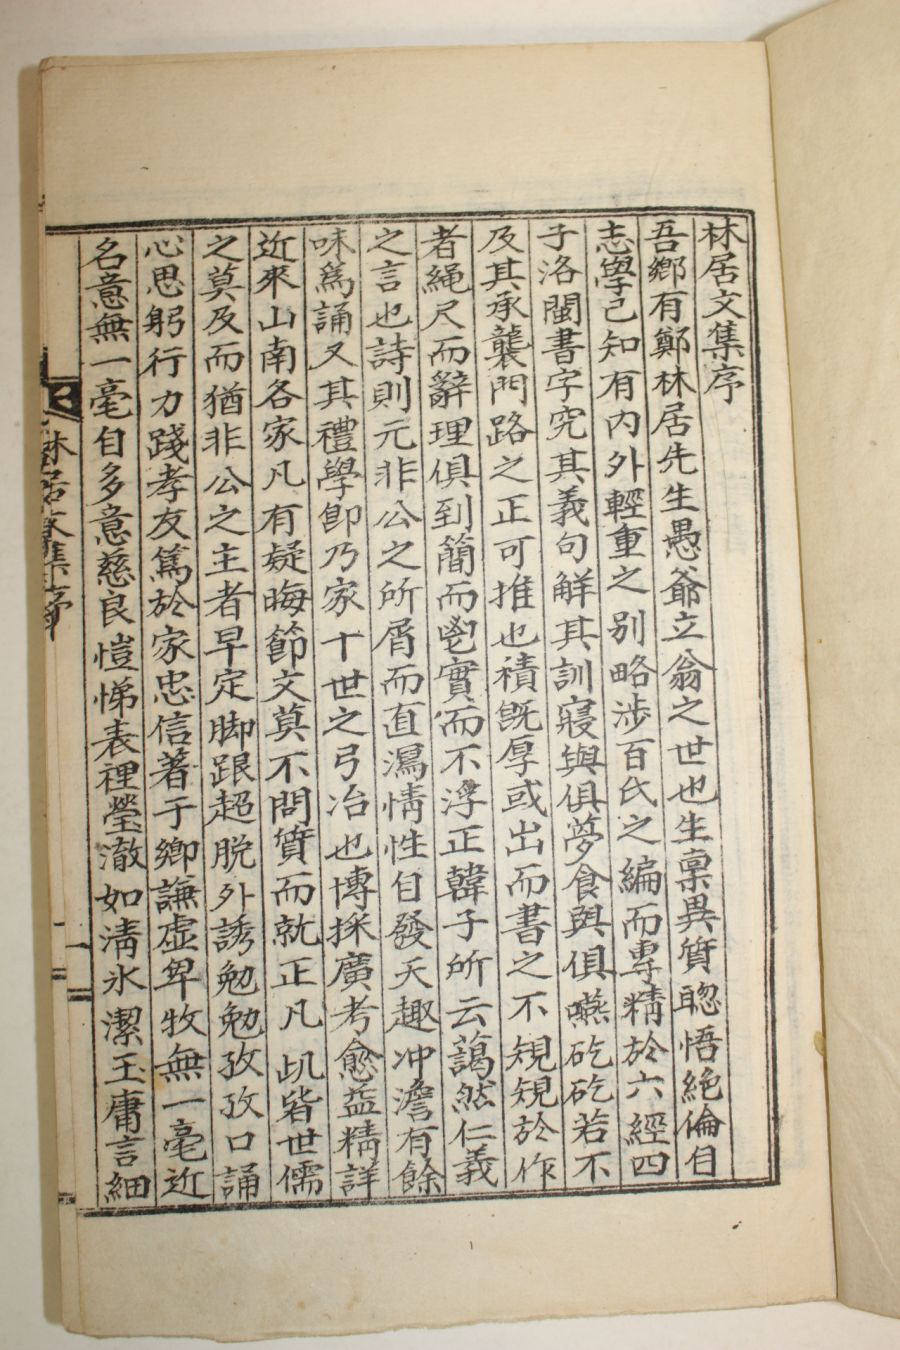 林居文集序
吾鄉有鄭林居先生愚爺立翁之世也生禀異質聡悟絶倫自
志學已知有内外輕重之别略涉百氏之編而專精於六經四
子洛閩書字究其義句解其訓寢與俱夢食與俱嚥矻矻若不
及其承襲門路之正可推也積旣厚或出而書之不規規於作
者繩尺而辭理俱到簡而鬯實而不浮正韓子所云藹然仁義
之言也詩則元非公之所屑而直瀉情性自發天趣冲澹有餘
味爲誦又其禮學卽乃家十世之弓冶也博採廣考愈益精詳
近來山南各家凡有疑晦節文莫不問質而就正凡此皆世儒
之莫及而猶非公之主者早定脚跟超脫外誘勉勉孜孜口誦
心思躬行力踐孝友篤於家忠信著于鄉謙虛卑牧無一毫近
名意無一毫自多意慈良愷悌表裡瑩澈如淸氷潔玉庸言細
林居文集序
一